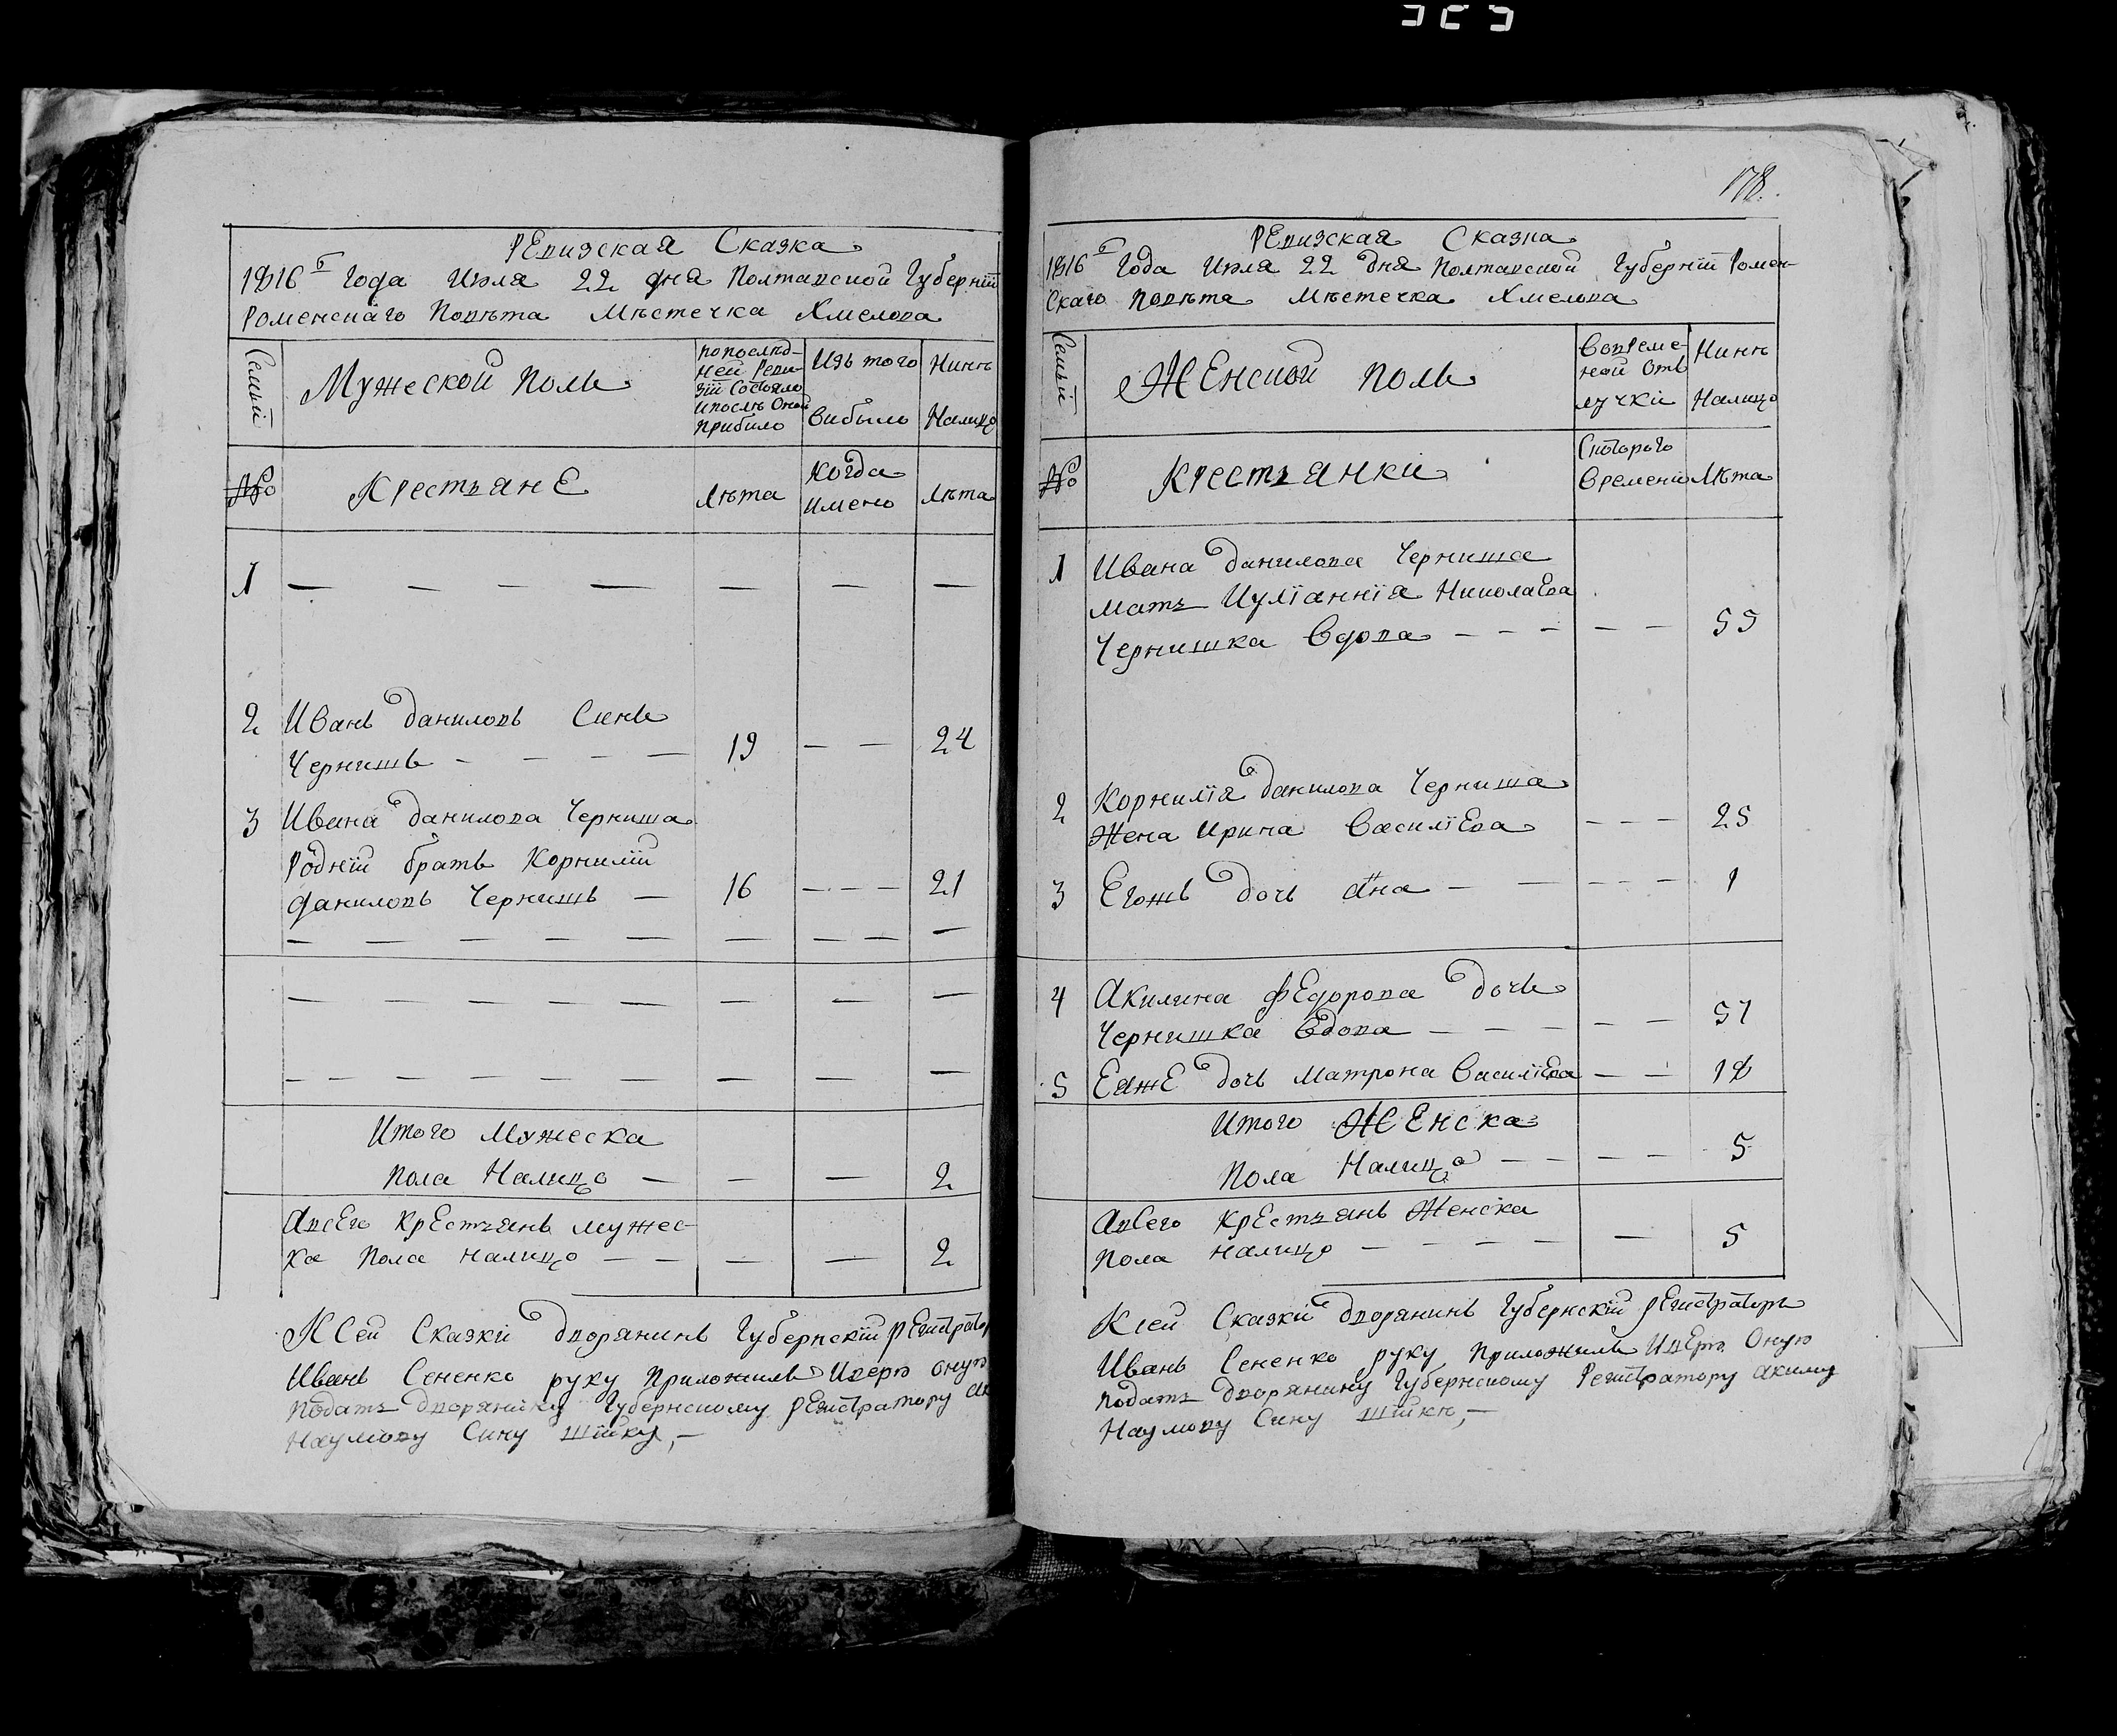 178.
РЕвизская Сказка
1816го Года Июля 22 дня Полтавской Губернїи
Роменскаго Повѣта Мѣстечка Хмелова
Семьи
Мужеской Полъ
попослѣд-
ней Реви-
зїи Состояло
Ипослѣ Оной
прибило
Изъ того
вибыло
Нинѣ
Налицо
№
КрестьянЕ
лѣта
когда
имено
лѣта
1
2 Иванъ Даниловъ Синъ
Чернишъ 19 24
3 Ивана Данилова Черниша
Роднїй братъ Корнилїй
Даниловъ Чернишъ 16 21
Итого Мужеска
Пола Налицо 2
АвсЕго КрЕстьянъ мужес-
ка Пола налицо 2
КСей Сказки Дворянинъ Губернскїй рЕгистраторъ
Иванъ Сененко руку Приложилъ Ивѣрю Оную
Подать Дворянину Губернскому рЕгистратору
Наумову Сину Шїйку,—
РЕвизская Сказка
1816го Года Июля 22 дня Полтавской Губернїи Ромен-
скаго Повѣта Мѣстечка Хмелова
Семьи
ЖЕнской полъ
Вовреме-
ной Отъ
лучки
Нинѣ
Налицо
№
Крестьянки
Скоторого
Времени
Лѣта
1 Ивана Данилова Черниша
мать Иулїаннїя НиколаЕва
Чернишка Вдова 55
2 Корнилїя Данилова Черниша
Жена Ирина ВасилїЕва 25
3 Егожъ дочь Анна 1
4 Акилина ФЕдорова дочь
Чернишка Вдова 57
5 ЕяжЕ дочь Матрона ВасилїЕва 18
Итого ЖЕнска
Пола Налицо 5
АвСего КрЕстьянъ Женска
Пола налицо 5
Ксей Сказки Дворянинъ Губернскїй рЕгистраторъ
Иванъ Сененко руку Приложилъ ИвЕрю Оную
подать Дворянину Губернскому Регистратору Акиму
Наумову Сину Шїйкѣ,—